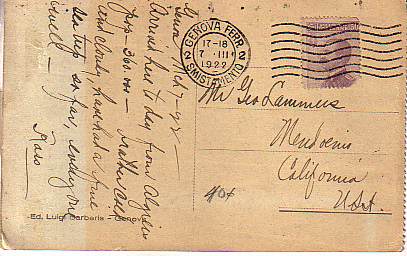 Genoa Mch 7 - 22 -
Arrived here to day from Algiers
Pop 360.000 - Weather cold
and cloudy, have had a fine
sea trip so far, everyone
well -
GENOVA FERR.
2 2
17-18
7 III
1922
SMISTAMENTO
Mr Geo Lammers
Mendocino
California
USA.
Ed. Luigi Barberis - Genova